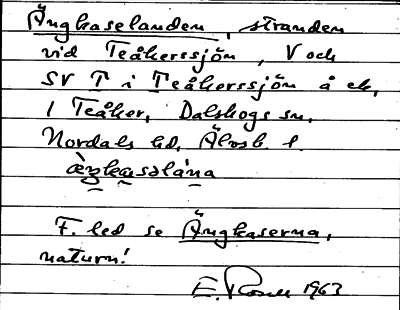 Ängkaselanden, stranden
vid Teåkerssjön, V och
SV T i Teåkerssjön å ek,
1 Teåker, Dalskogs sn,
Nordals hd, Älvsb. l.
æ̀ŋkasəlána
F. led se Ängkaserna,
naturn!
E. 1963